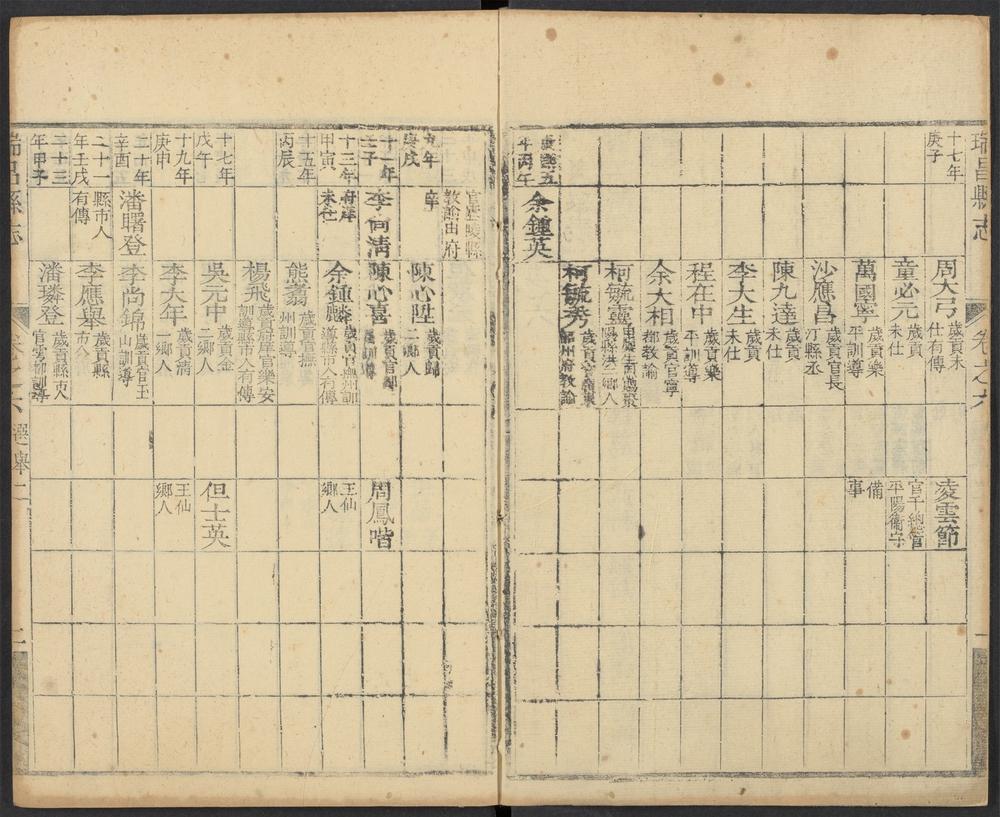 瑞昌縣志
卷之六
十七年
庚子
周大弓
歲貢未
仕有傳
凌雲節
官千總管
平陽衛守
備
事
童必元
歲貢
未仕
萬國寧
歲貢樂
平訓導
沙應昌
歲貢官長
汀縣丞
陳九達
歲貢
未仕
李大生
歲貢
未仕
程在中
歲貢樂
平訓導
余大相
歲貢官寧
都教諭
柯毓靈
柯毓秀
康熙五
年丙午
余鍾英
官
教諭由府
九年
庚戌
陳心陞
歲貢歸
二鄉人
十一年
壬子
李向清
陳心喜
周鳳喈
十三年
甲寅
府庠
未仕
余鍾麟
王仙
鄉人
十五年
丙辰
熊翥
歲貢撫
州訓導
楊飛
歲貢府庠官樂安
訓導縣市人有傳
十七年
戊午
吳元中
歲貢金
二鄉人
但士英
十九年
庚申
李大年
歲貢清
一鄉人
王仙
鄉人
二十年
辛酉
潘曙登
李尚錦
歲貢官玉
山訓導
二十一
年壬戌
縣市人
有傳
李應舉
歲貢縣
市人
二十三
年甲子
潘璘登
歲貢縣市人
官雩都訓導
瑞昌縣志
卷之六
選舉
二